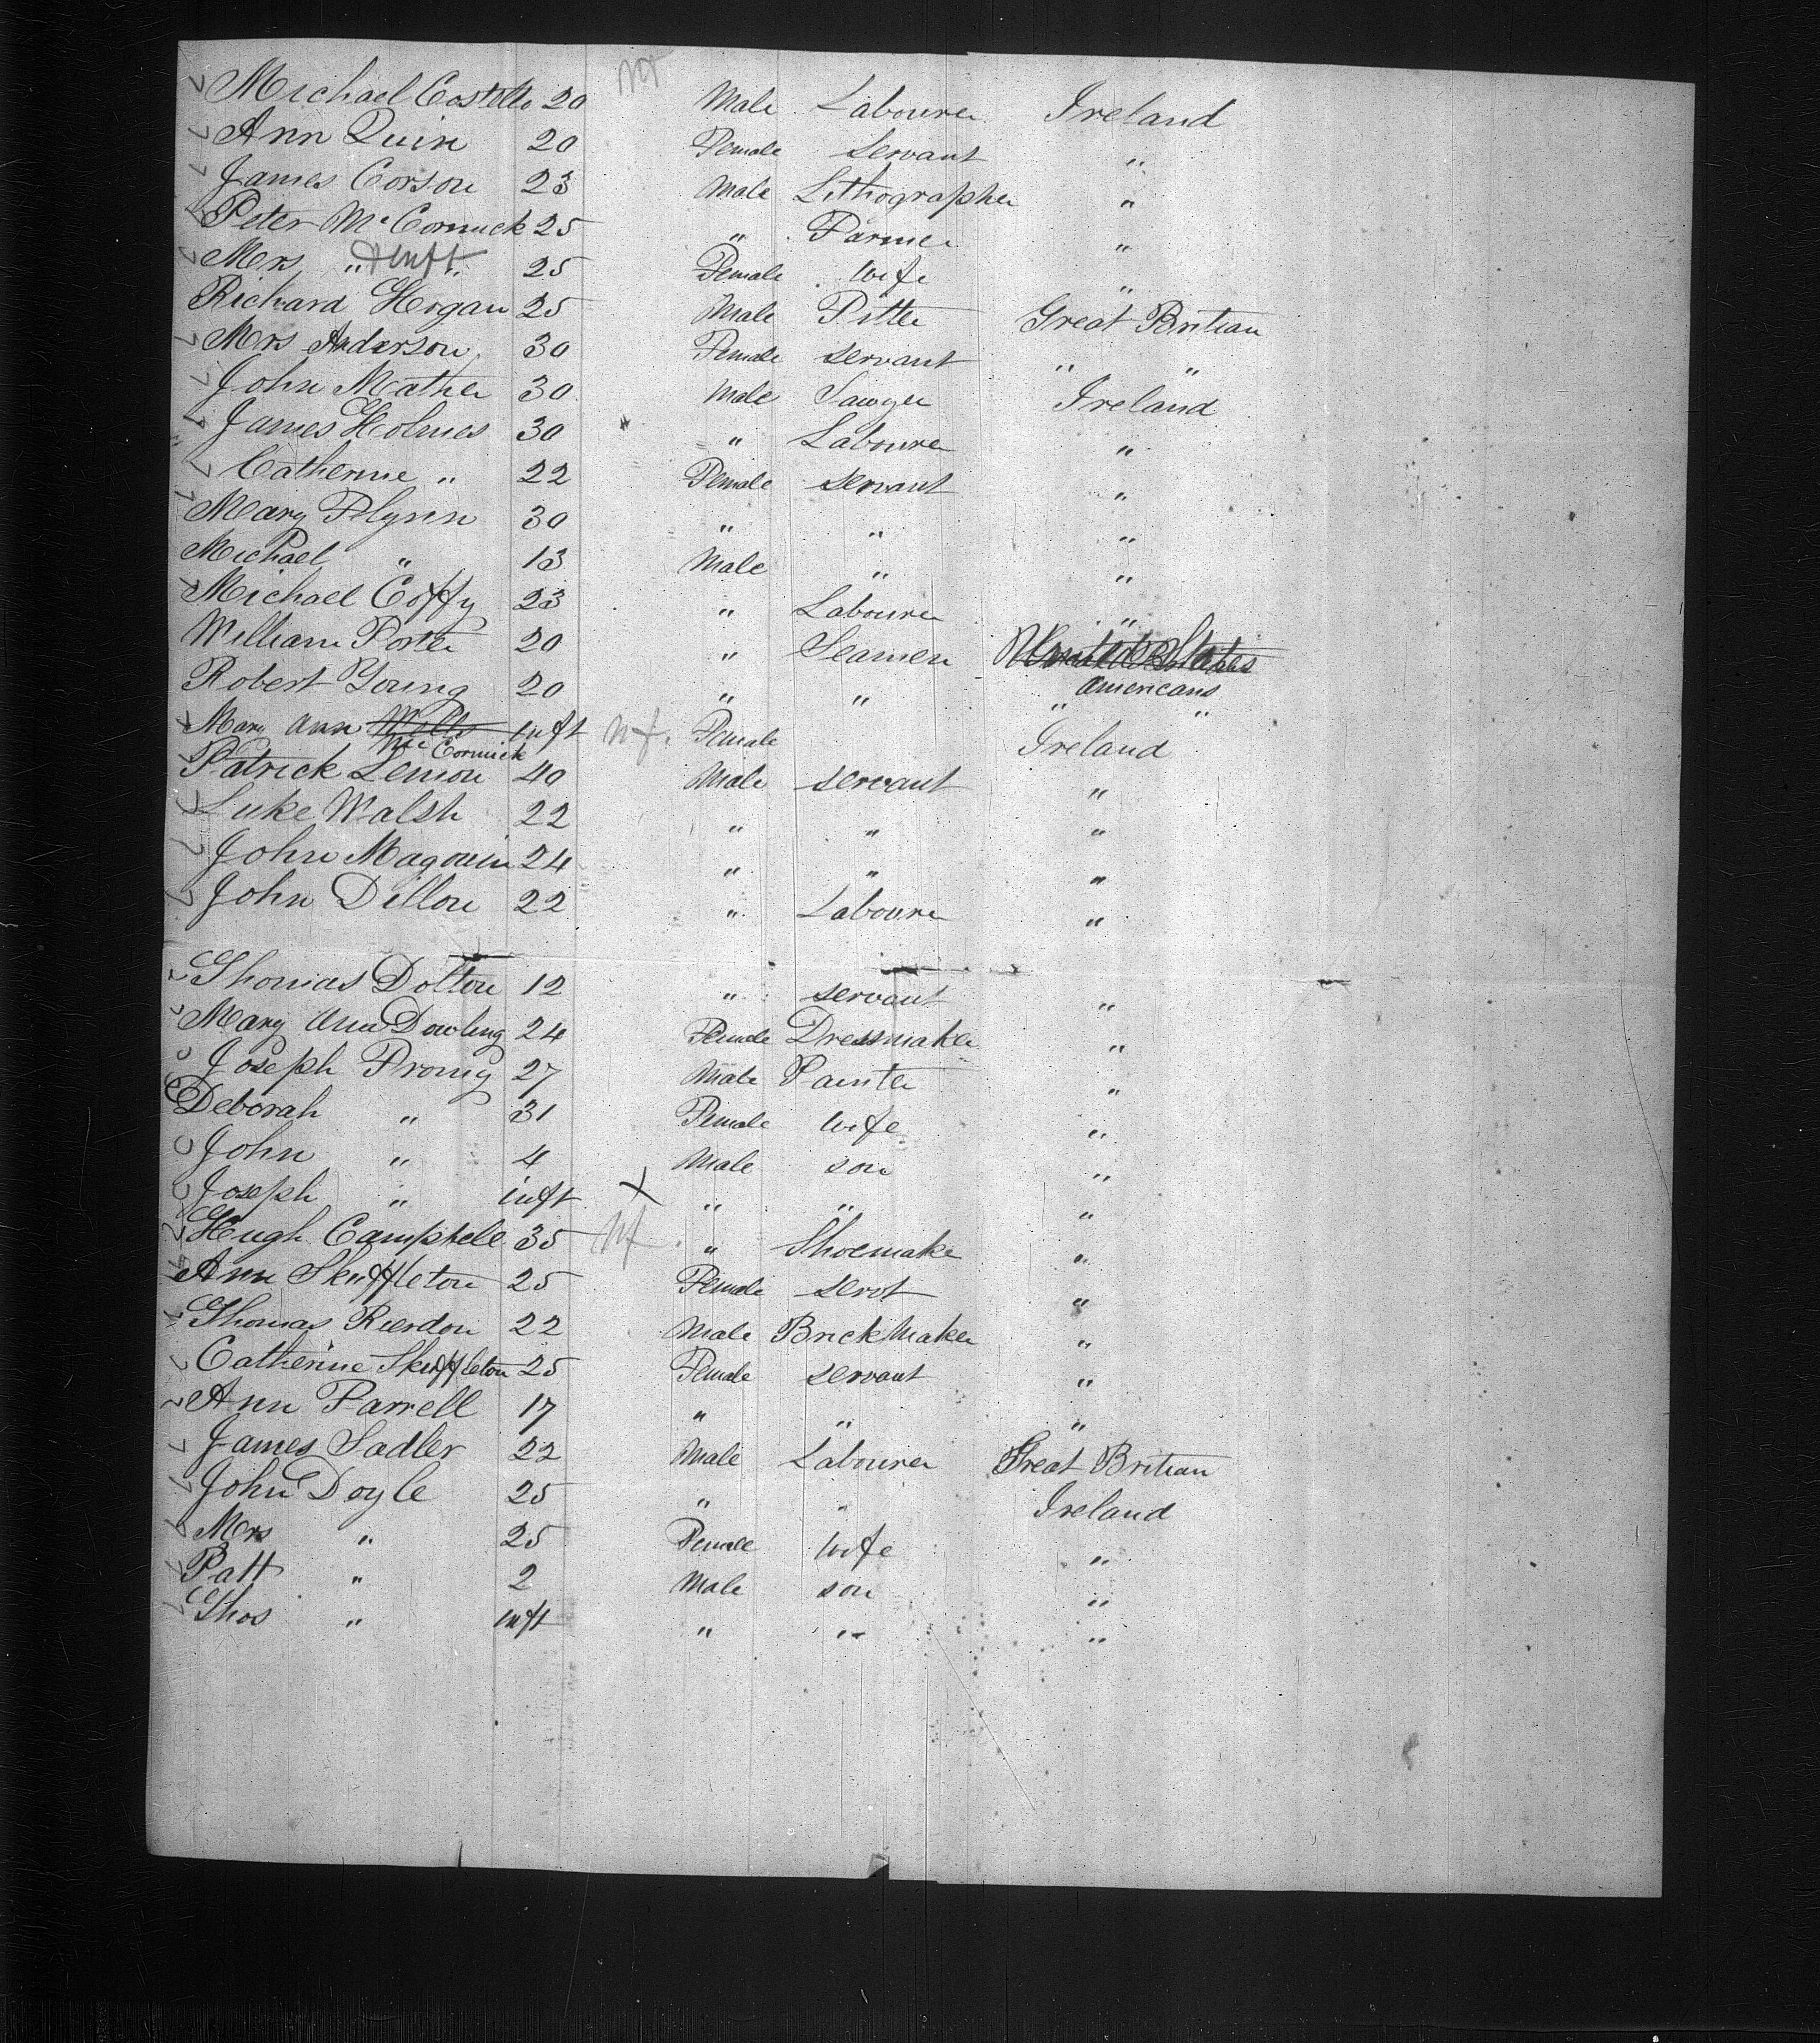 Michael Costello 20 Male Labourer Ireland
Ann Quin 20 Female Servant "
James Corson 23 Male Lithographer "
Peter McCormick 25 " Farmer "
Mrs " & Inft " 25 Female wife "
Richard Hogan 25 Male Fitter Great Britian
Mrs Anderson 30 Female servant " "
John Mather 30 Male Sawyer Ireland
James Holmes 30 " Labourer "
Catherine " 22 Female servant "
Mary Flynn 30 " " "
Michael " 13 Male " "
Michael Coffy 23 " Labourer "
William Porter 20 " Seamen United States
Americans
Robert Young 20 " " " "
Mary Ann Wells inft Female Ireland
McCormick
Patrick Lemon 40 Male servant "
Luke Walsh 22 " " "
John Magouin 24 " " "
John Dillon 22 " Labourer "
Thomas Dolton 12 " servant "
Mary Ann Dowling 24 Female Dressmaker "
Joseph Prouig 27 Male Painter "
Deborah " 31 Female wife "
John " 4 Male son "
Joseph " inft X " " "
Hugh Campbell 35 " Shoemaker "
Ann Skuffleton 25 Female servt "
Thomas Rierdon 22 Male BrickMaker "
Catherine Skuffleton 25 Female servant "
Ann Farrell 17 " " "
James Sadler 22 Male Labourer Great Britian
John Doyle 25 " " Ireland
Mrs " 25 Female wife "
Patt " 2 Male son "
Thos " inft " " "